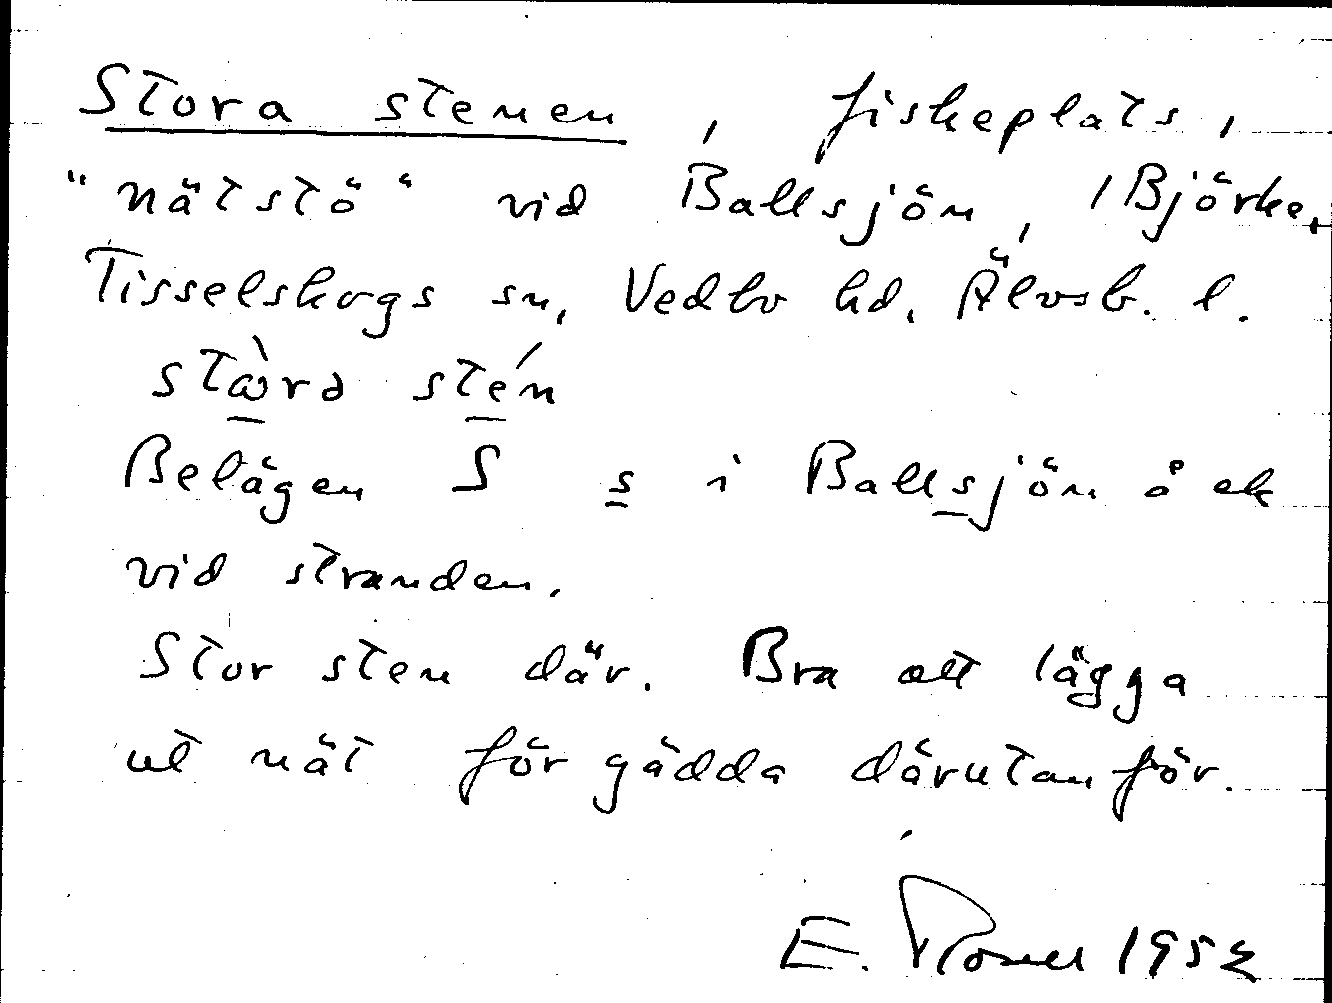 Stora stenen, fiskeplats,
"nätstö" vid Ballsjön, Björke,
Tisselskogs sn, Vedbo hd. Älvsb. l.
sten
Belägen S s i Ballsjön å ek
vid stranden.
Stor sten där. Bra att lägga
ut nät för gädda därutanför.
E. 195